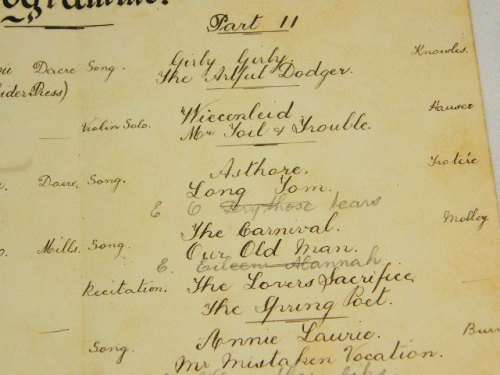 Programme.
Part II
Dacre Song. Girly Girly. Knowles.
The Artful Dodger.
Violin Solo. Wiegenleid Hauser
Mr Toil & Trouble.
Dacre. Song. Asthore. Trotère
Long Tom.
E E Dry those tears
The Carnival. Molloy.
Mills. Song. Our Old Man.
E. Eileen Alannah
Recitation. The Lovers Sacrifice
The Spring Poet.
Song. Annie Laurie.
Mr Mistaken Vocation.